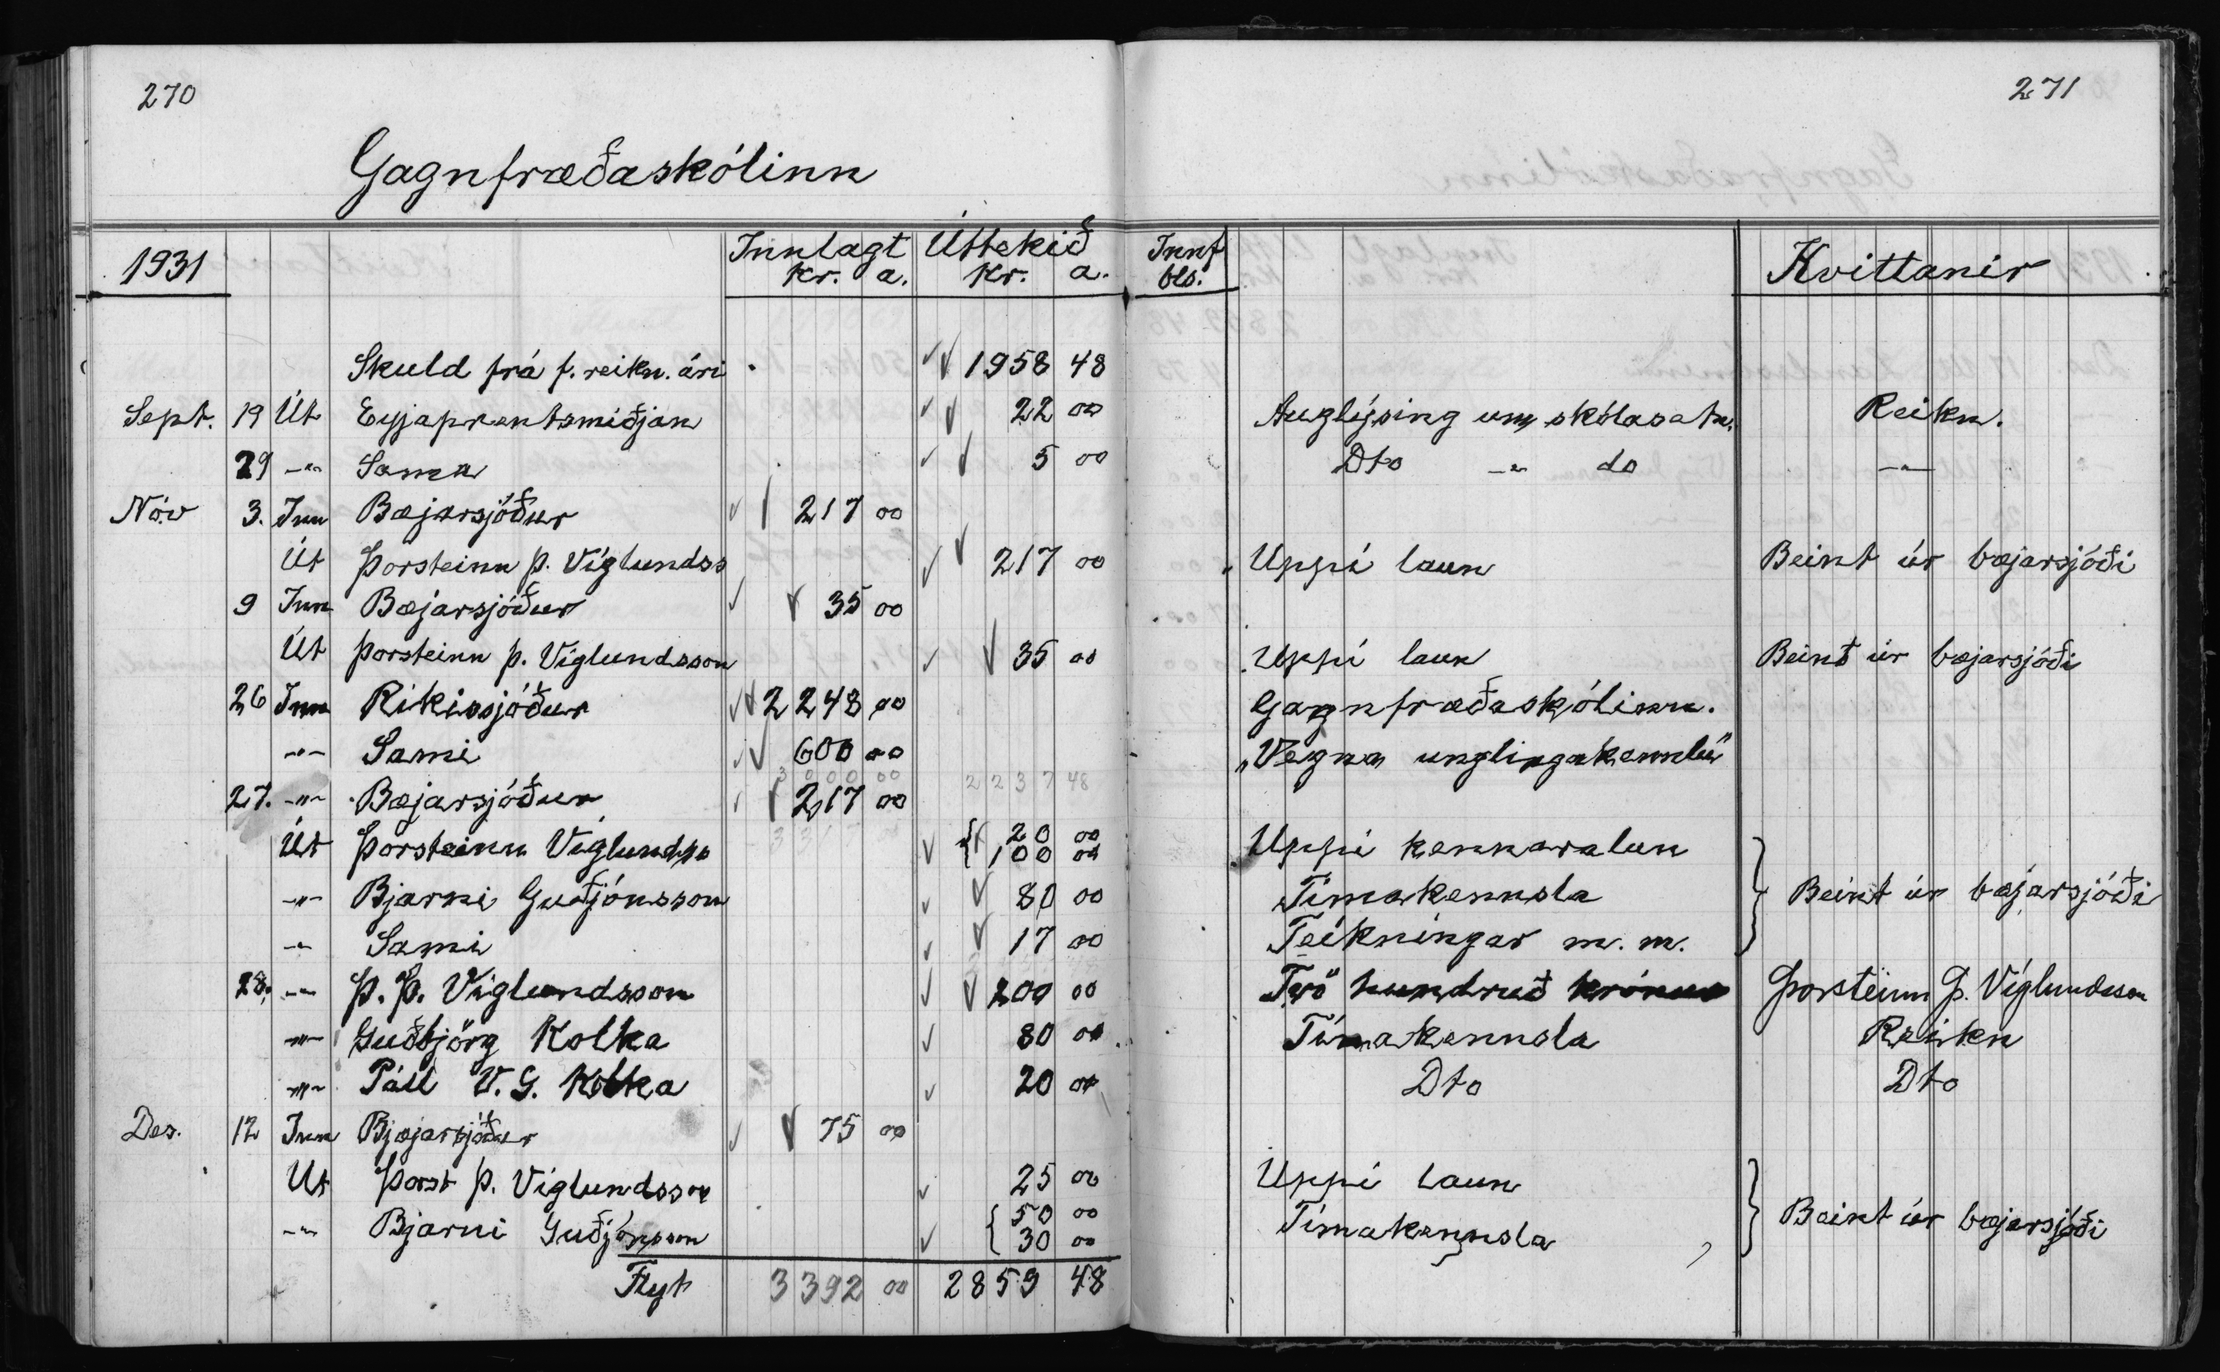 270
271
Gagnfræðaskólinn
1931 Innlagt Úttekið Innf Kvittanir
kr. a. kr. a. bls.
Skuld frá f. reikn. ári 1958 48
Sept. 19 Út Eyjaprentsmiðjan 22 00 Auglýsing um skólasetn. Reikn.
29 -"- Sama 5 00 Dto -"- do -"-
Nóv 3. Inn Bæjarsjóður 217 00
Út Þorsteinn Þ. Víglundss 217 00 Uppí laun Beint úr bæjarsjóði
9 Inn Bæjarsjóður 35 00
Út Þorsteinn Þ. Víglundsson 35 00 Uppí laun Beint úr bæjarsjóði
26 Inn Ríkissjóður 2248 00 Gagnfræðaskólinn.
-"- Sami 600 00 „Vegna unglingakennslu"
3000 00 2237 48
27. -"- Bæjarsjóður 217 00
3317 00 20 00
Út Þorsteinn Víglundss 100 00 Uppí kennaralaun
-"- Bjarni Guðjónsson 80 00 Tímakennsla Beint úr bæjarsjóði
-"- Sami 17 00 Teikningar m. m.
28. -"- Þ. Þ. Víglundsson 200 00 Tvö hundruð krónur Þorsteinn Þ. Víglundsson
-"- Guðbjörg Kolka 80 00 Tímakennsla Reikn
-"- Páll V. G. Kolka 20 00 Dto Dto
Des. 12 Inn Bjæjarsjóður 75 00
Út Þorst Þ. Víglundsson 25 00 Uppí laun
50 00
-"- Bjarni Guðjónsson 30 00 Tímakennsla Beint úr bæjarsjóði
Flyt 3392 00 2859 48